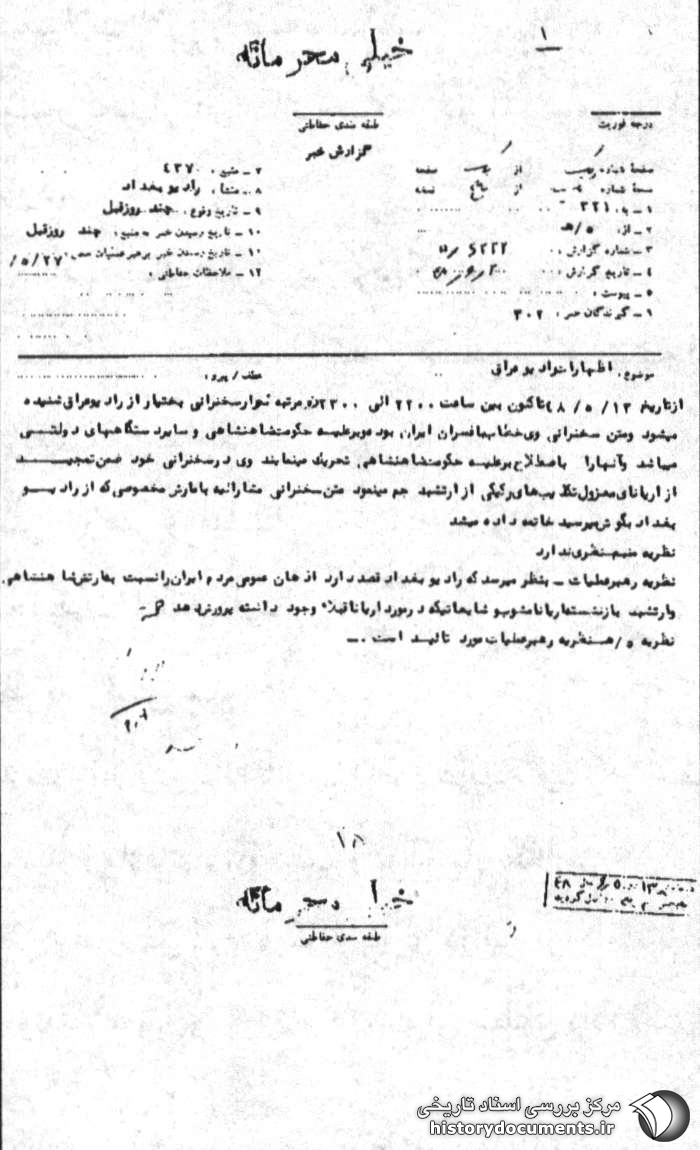 ۱
خیلی محرمانه
طبقه بندی حفاظتی
درجه فوریت
گزارش خبر
صفحه شماره یک از یک صفحه
نسخه شماره از نسخه
۱ ـ به : ۳۲۱
۲ ـ از : ۵/هـ
۳ ـ شماره گزارش :
۴ ـ تاریخ گزارش :
۵ ـ پیوست :
۶ ـ گیرندگان خبر : ۳۰۲
۷ ـ منبع : ۴۳۷۰
۸ ـ منشأ : رادیو بغداد
۹ ـ تاریخ وقوع : چند روزقبل
۱۰ ـ تاریخ رسیدن خبر به منبع : چند روزقبل
۱۰ ـ تاریخ رسیدن خبر برهبر عملیات ۲۷/۵/
۱۲ ـ ملاحظات حفاظتی :
موضوع : اظهارات رادیو عراق
عطف / پیرو :
ازتاریخ ۱۳/۵/۴۸ تاکنون بین ساعت ۲۲۰۰ الی ۲۳۰۰ دو مرتبه نوار سخنرانی بختیار از رادیو عراق شنیده
میشود ومتن سخنرانی وی خطاب بافسران ایران بوده و برعلیه حکومت شاهنشاهی و سایر دستگاههای دولتی
میباشد وآنها را باصطلاح برعلیه حکومت شاهنشاهی تحریک مینماید وی در سخنرانی خود ضمن تمجید
از آریانای معزول تکذیب های رکیکی از ارتشبد جم مینمود متن سخنرانی مشارالیه با مارش مخصوصی که از رادیو
بغداد بگوش میرسید خاتمه داده میشد
نظریه منبع ـ نظری ندارد
نظریه رهبرعملیات ـ بنظر میرسد که رادیو بغداد قصد دارد اذهان عمومی مردم ایران را نسبت به ارتش شاهنشاهی
وارتشبد بازنشسته آریانا مشوب و شایعاتیکه در مورد آریانا قبلا" وجود داشته پرورش دهد
نظریه ۵/هـ ـ نظریه رهبرعملیات مورد تائید است . ـ
۱۸
خیلی محرمانه
طبقه بندی حفاظتی
مرکز بررسی اسناد تاریخی
historydocuments.ir